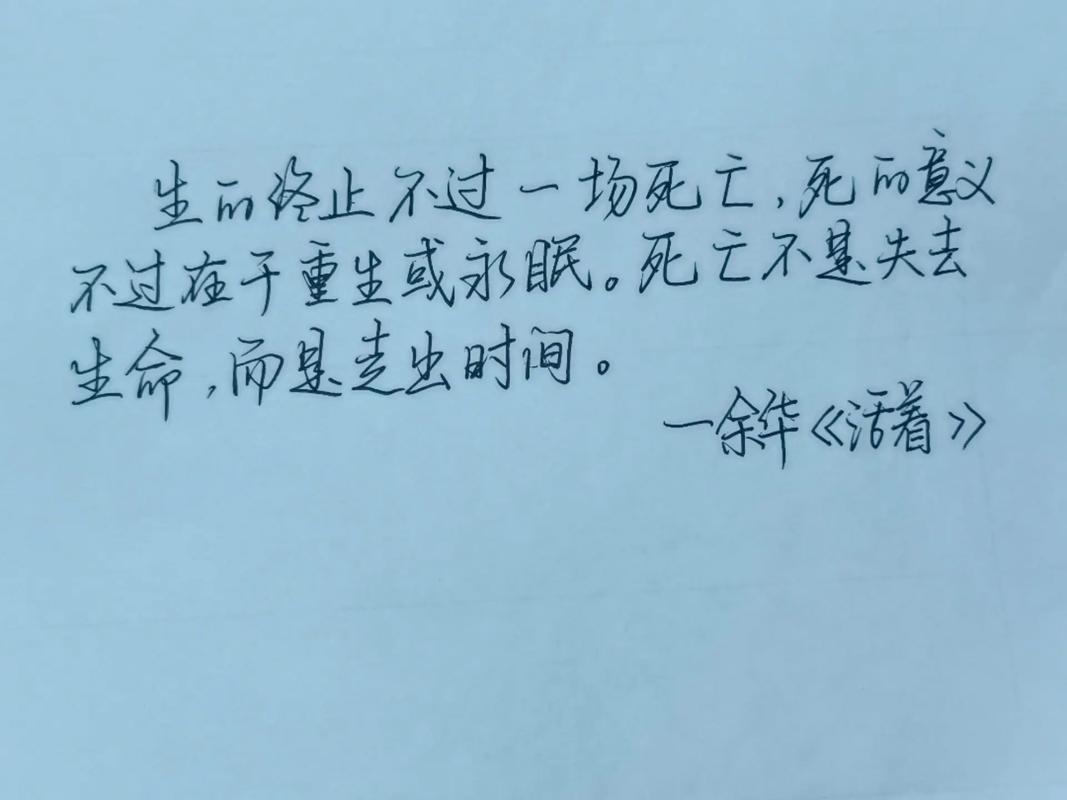 生的终止不过一场死亡，死的意义
不过在于重生或永眠。死亡不是失去
生命，而是走出时间。
一余华《活着》